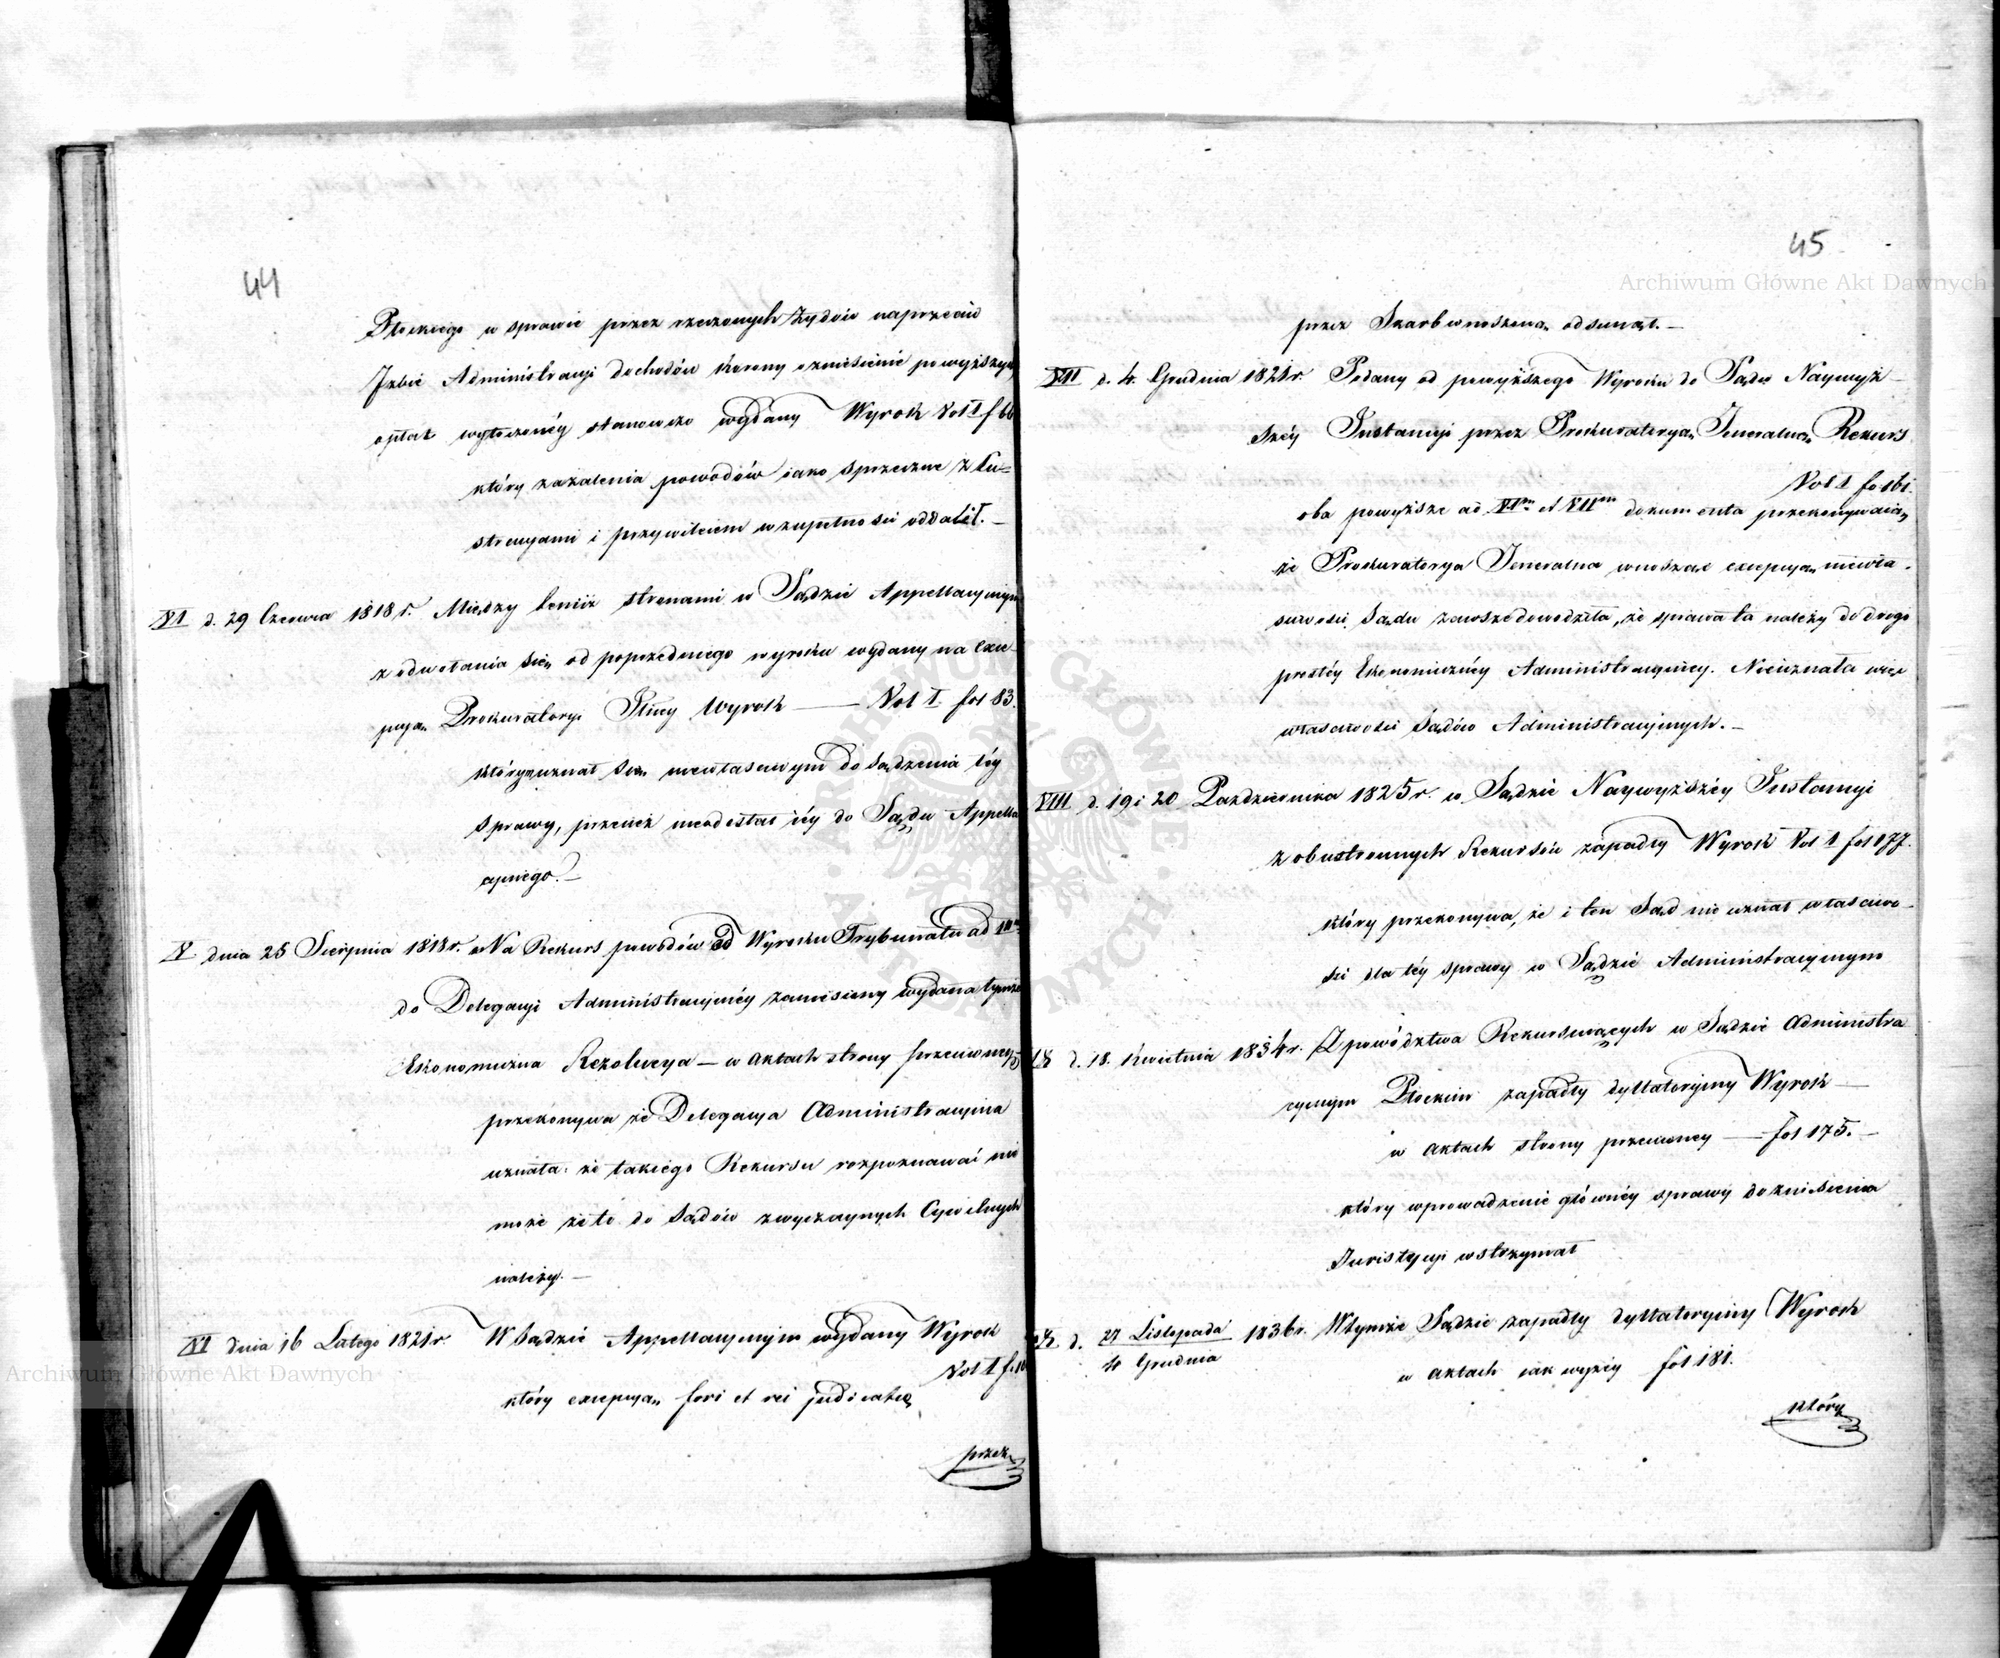 44
Płockiego w sprawie przez rzeczonych Żydów naprzeciw
Izbie Administracyi dochodów Korony o zniesienie powyższych
opłat wytoczonéy stanowczo wydany Wyrok Vol I f 66
który zażalenia powodów iako sprzeczne z Lu=
stracyami i przywileiem w zupełności oddalił. —
VI d. 29 Czerwca 1818 r. Między temiż stronami w Sądzie Appellacyinym
z odwołania się od poprzedniego wyroku wydany na exce-
pcyą Prokuratoryi Wyrok — Vol I. fol 83.
który uznał się niewłasciwym do sądzenia téy
sprawy, przecież niezdestał iéy do Sądu Appella
cyinego. —
V dnia 25 Sierpnia 1818 r. Na Rekurs powodów od Wyroku Trybunału ad
do Delegacyi Administracyinéy zaniesiony wydana tymże
Ekonomiczna Rezolucya — w aktach strony przeciwney
przekonywa że Delegacya Administracyina
uznała: że takiego Rekursu rozpoznawać nie
może że to do Sądów zwyczaynych Cywilnych
należy. —
XI dnia 16 Lutego 1821 r. W Sądzie Appellacyinym wydany Wyrok
Vol I f.
który excepcyą fori et rei judicatae
przez
45
przez Skarb wnoszoną odsunął. —
VII d. 4. Grudnia 1821 r. Podany od powyższego Wyroku do Sądu Naywyż-
széy Instancyi przez Prokuratoryą Jeneralną Rekurs
Vol I fo 161.
oba powyższe ad VIm et VIIm dokumenta przekonywaią
że Prokuratorya Jeneralna wnosząc excepcyą niewła-
sciwosci Sądu zawsze dowodziła, że sprawa ta należy do drogi
prostéy Ekonomicznéy Administracyinéy. Nieuznała więc
właściwości Sądów Administracyinych. —
VIII d. 19 i 20 Października 1825 r. w Sądzie Naywyższéy Instancyi
z obustronnych Rekursów zapadły Wyrok Vol I fol 177.
który przekonywa, że i ten Sąd nie uznał własciwo-
sci dla téy sprawy w Sądzie Administracyinym
IX d. 18. Kwietnia 1834 r. Z powództwa Rekuruiących w Sądzie Administra
cyinym Płockim zapadły dyllatoryiny Wyrok —
w aktach strony przeciwney — fol 175. —
który wprowadzenie głównéy sprawy do zniesienia
Jurisdycyi wstrzymał
X d. 27 Listopada 1836 r. W tymże Sądzie zapadły dyllatoryiny Wyrok
Grudnia
w aktach iak wyżéy fol 181.
który
Archiwum Główne Akt Dawnych
Archiwum Główne Akt Dawnych
ARCHIWUM GŁÓWNE AKT DAWNYCH